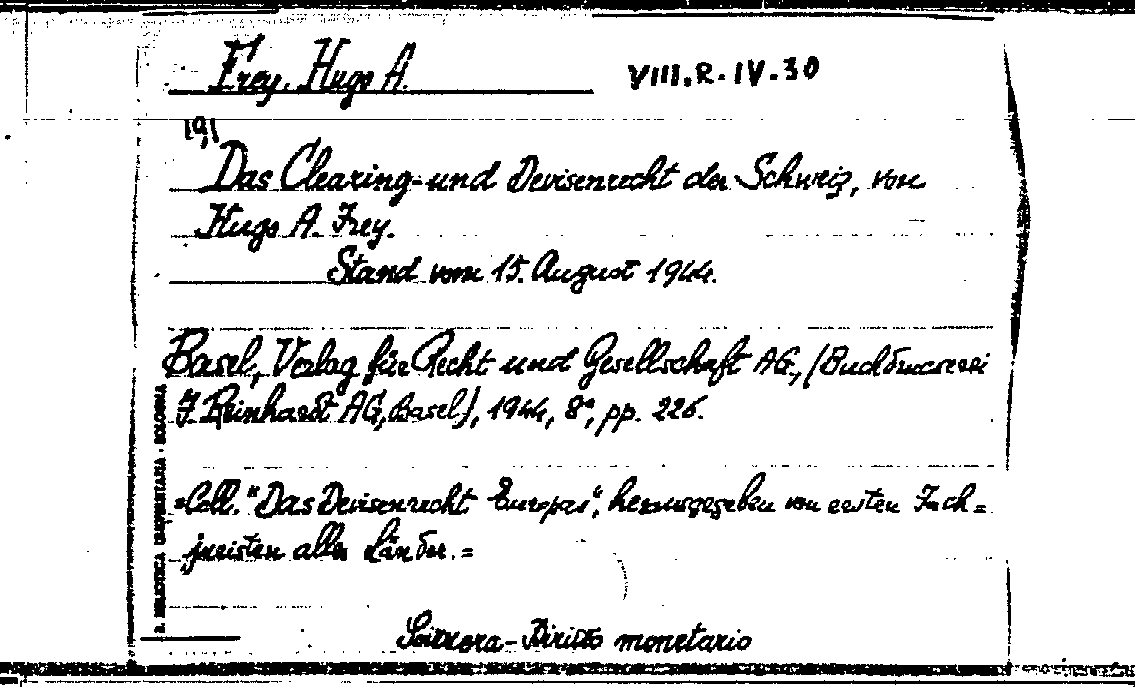 Frey, Hugo A. VIII.R.IV.30
191
Das Clearing- und Devisenrecht der Schweiz, von
Hugo A. Frey.
Stand vom 15. August 1944.
Basel, Verlag für Recht und Gesellschaft AG., (Buchdruckerei
F. Reinhardt AG, Basel), 1944, 8°, pp. 226.
=Coll. "Das Devisenrecht Europas", herausgegeben von ersten Fach=
juristen aller Länder.=
Svizzera - Diritto monetario
R. BIBLIOTECA UNIVERSITARIA - BOLOGNA